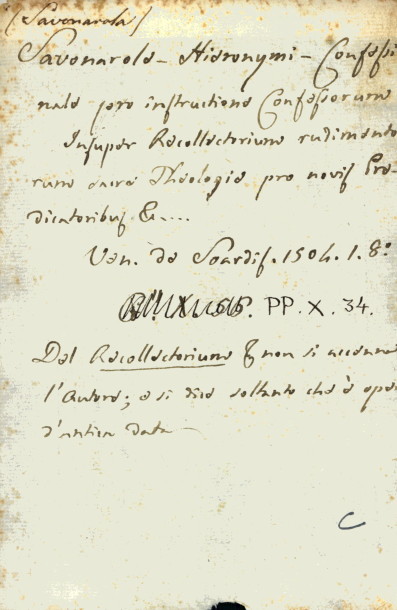 (Savonarola)
Savonarola - Hieronymi - Confessi
nale pro instructione Confessorum
Insuper Recollectorium rudimento
rum sacre Theologie pro novis Pre-
dicatoribus &....
Ven. de Soardis. 1504. 1. 8º
PP. X. 34.
Del Recollectorium & non si accenna
l'Autore; e si dice soltanto che è opa
d'antica data
C